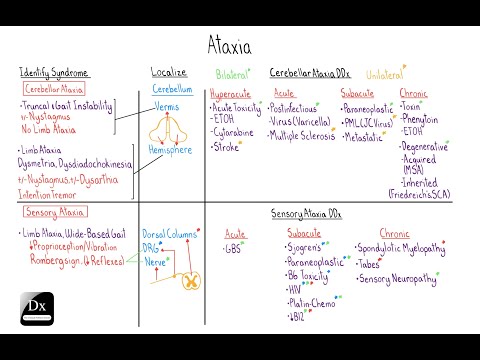 Ataxia
Identify Syndrome
Localize
Bilateral*
Cerebellar Ataxia DDx
Unilateral*
Cerebellar Ataxia
• Truncal & Gait Instability
+/- Nystagmus
No Limb Ataxia
• Limb Ataxia
Dysmetria, Dysdiadochokinesia
+/- Nystagmus, +/- Dysarthia
Intention Tremor
Cerebellum
Vermis
Hemisphere
Hyperacute
• Acute Toxicity*
- ETOH
- Cytarabine
• Stroke*
Acute
• Postinfectious*
• Virus (Varicella)*
• Multiple Sclerosis*
Subacute
• Paraneoplastic*
• PML (JC Virus)*
• Metastatic*
Chronic
• Toxin*
- Phenytoin
- ETOH
• Degenerative*
- Acquired
(MSA)
- Inherited
(Friedreich's, SCA)
Sensory Ataxia
• Limb Ataxia, Wide-Based Gait
↓Proprioception/Vibration
Romberg sign, (↓Reflexes)
Dorsal Columns*
DRG*
Nerve*
Sensory Ataxia DDx
Acute
• GBS*
Subacute
• Sjogren's*
• Paraneoplastic**
• B6 Toxicity*
• HIV**
• Platin-Chemo*
• ↓B12**
Chronic
• Spondylotic Myelopathy*
• Tabes*
• Sensory Neuropathy*
Dx